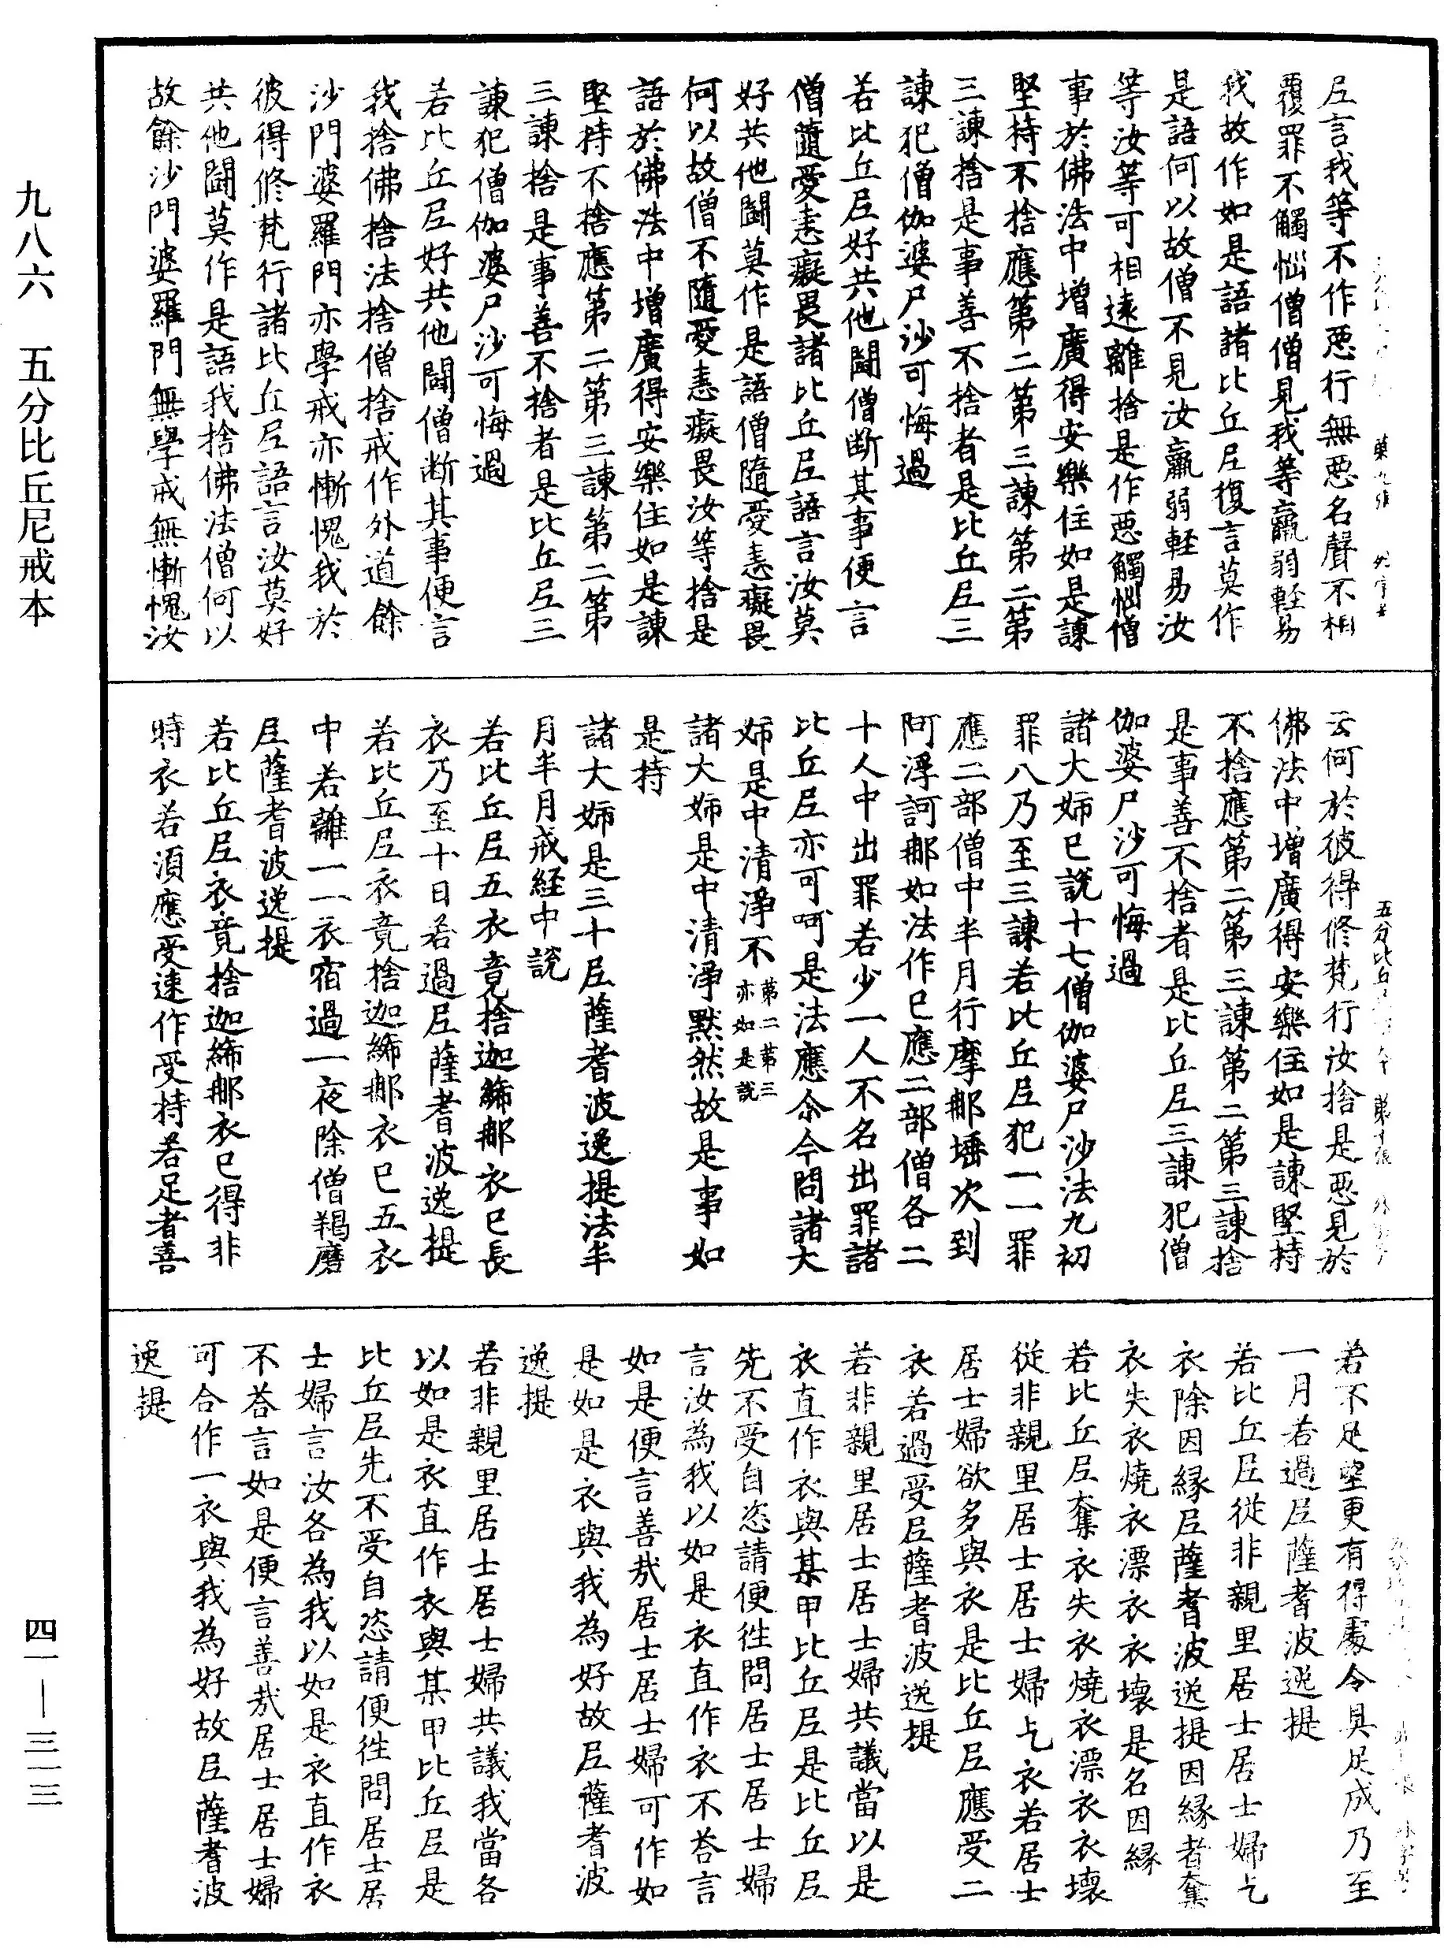 九八六　五分比丘尼戒本
四一—三一三
尼言我等不作惡行無惡名聲不相
覆罪不觸惱僧僧見我等羸弱輕易
我故作如是語諸比丘尼復言莫作
是語何以故僧不見汝羸弱輕易汝
等汝等可相遠離捨是作惡觸惱僧
事於佛法中增廣得安樂住如是諫
堅持不捨應第二第三諫第二第
三諫捨是事善不捨者是比丘尼三
諫犯僧伽婆尸沙可悔過
若比丘尼好共他鬪僧斷其事便言
僧隨愛恚癡畏諸比丘尼語言汝莫
好共他鬪莫作是語僧隨愛恚癡畏
何以故僧不隨愛恚癡畏汝等捨是
語於佛法中增廣得安樂住如是諫
堅持不捨應第二第三諫第二第
三諫捨是事善不捨者是比丘尼三
諫犯僧伽婆尸沙可悔過
若比丘尼好共他鬪僧斷其事便言
我捨佛捨法捨僧捨戒作外道餘
沙門婆羅門亦學戒亦慚愧我於
彼得修梵行諸比丘尼語言汝莫好
共他鬪莫作是語我捨佛法僧何以
故餘沙門婆羅門無學戒無慚愧汝
云何於彼得修梵行汝捨是惡見於
佛法中增廣得安樂住如是諫堅持
不捨應第二第三諫第二第三諫捨
是事善不捨者是比丘尼三諫犯僧
伽婆尸沙可悔過
諸大姊已說十七僧伽婆尸沙法九初
罪八乃至三諫若比丘尼犯一一罪
應二部僧中半月行摩那埵次到
阿浮訶那如法作已應二部僧各二
十人中出罪若少一人不名出罪諸
比丘尼亦可呵是法應尒今問諸大
姊是中清淨不第二第三亦如是說
諸大姊是中清淨默然故是事如
是持
諸大姊是三十尼薩耆波逸提法半
月半月戒経中說
若比丘尼五衣竟捨迦絺那衣已長
衣乃至十日若過尼薩耆波逸提
若比丘尼衣竟捨迦絺那衣已五衣
中若離一一衣宿過一夜除僧羯磨
尼薩耆波逸提
若比丘尼衣竟捨迦絺那衣已得非
時衣若須應受速作受持若足者善
若不足望更有得處令具足成乃至
一月若過尼薩耆波逸提
若比丘尼從非親里居士居士婦乞
衣除因緣尼薩耆波逸提因緣者奪
衣失衣燒衣漂衣衣壞是名因緣
若比丘尼奪衣失衣燒衣漂衣衣壞
從非親里居士居士婦乞衣若居士
居士婦欲多與衣是比丘尼應受二
衣若過受尼薩耆波逸提
若非親里居士居士婦共議當以是
衣直作衣與某甲比丘尼是比丘尼
先不受自恣請便徃問居士居士婦
言汝為我以如是衣直作衣不荅言
如是便言善哉居士居士婦可作如
是如是衣與我為好故尼薩耆波
逸提
若非親里居士居士婦共議我當各
以如是衣直作衣與某甲比丘尼是
比丘尼先不受自恣請便徃問居士居
士婦言汝各為我以如是衣直作衣
不荅言如是便言善哉居士居士婦
可合作一衣與我為好故尼薩耆波
逸提